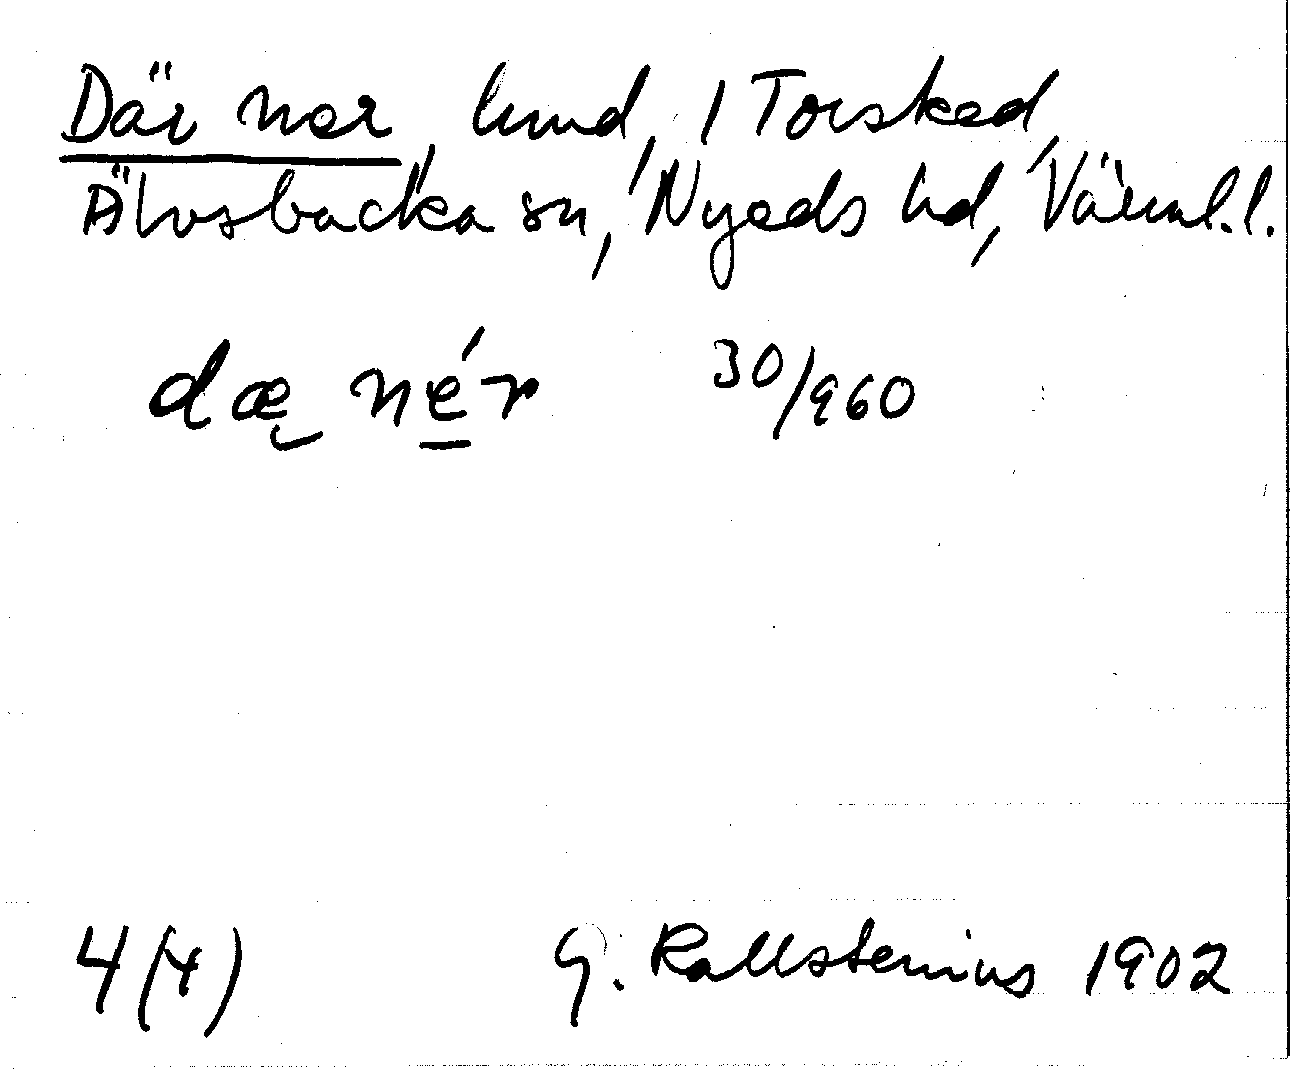 Där ner, lund, 1 Torsked,
Älvsbacka sn, Nyeds hd, Värml. l.
dæ̨ nér 30/960
4(4) G. Kallstenius 1902